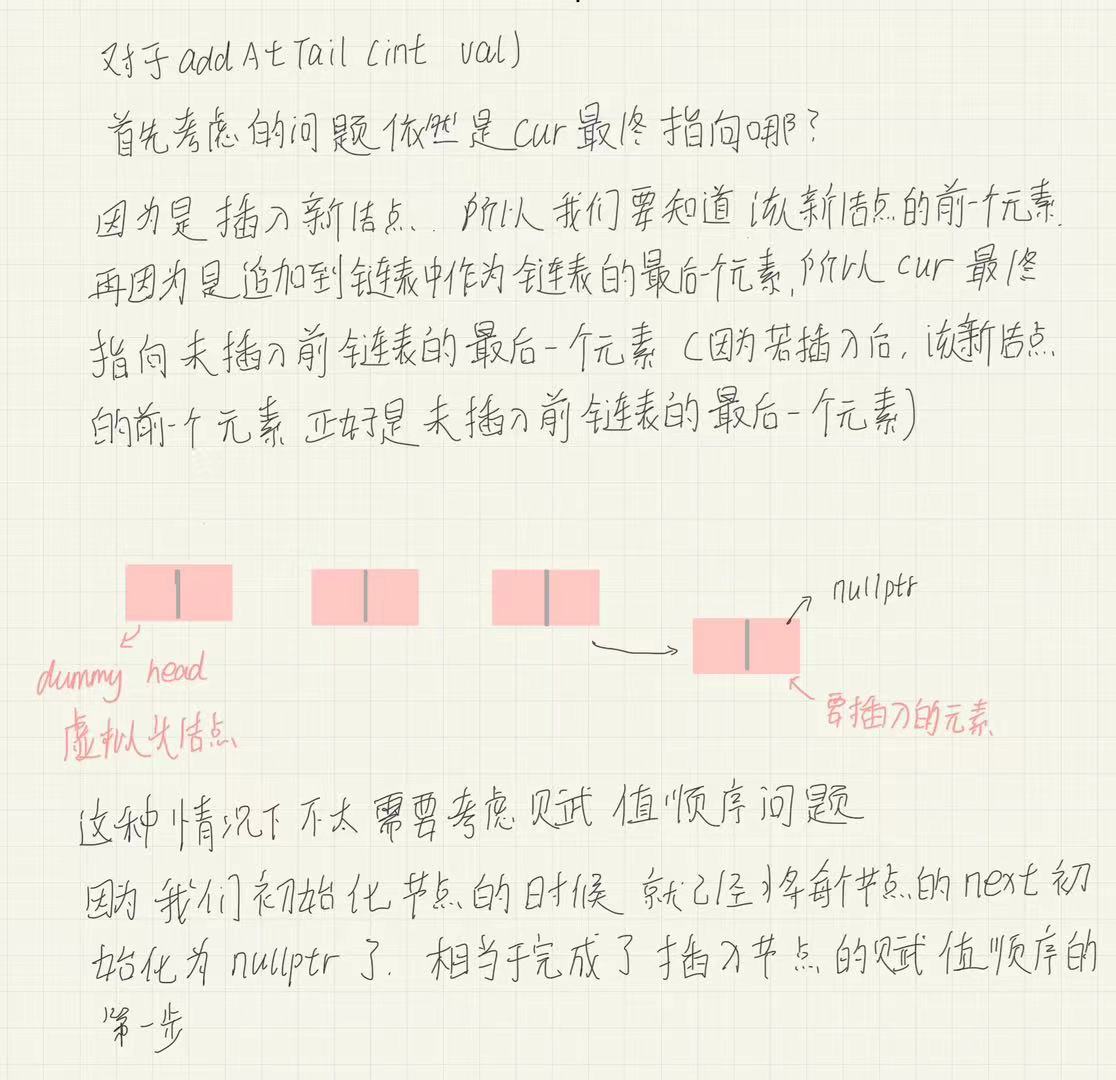 对于addAtTail(int val)
首先考虑的问题依然是cur最终指向哪?
因为是插入新结点. 所以我们要知道该新结点的前一个元素.
再因为是追加到链表中作为链表的最后一个元素,所以cur最终
指向未插入前链表的最后一个元素(因为若插入后,该新结点
的前一个元素正好是未插入前链表的最后一个元素)
nullptr
dummy head
虚拟头结点
要插入的元素
这种情况下不太需要考虑赋值顺序问题
因为我们初始化节点的时候就已经将每个节点的next初
始化为nullptr了. 相当于完成了插入节点的赋值顺序的
第一步